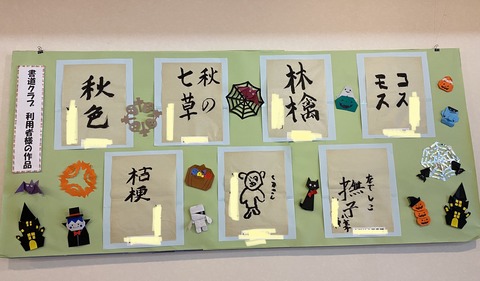 書道クラブ 利用者様の作品
秋色
秋の
七草
林檎
コス
モス
桔梗
くまさん
なでしこ
撫子様